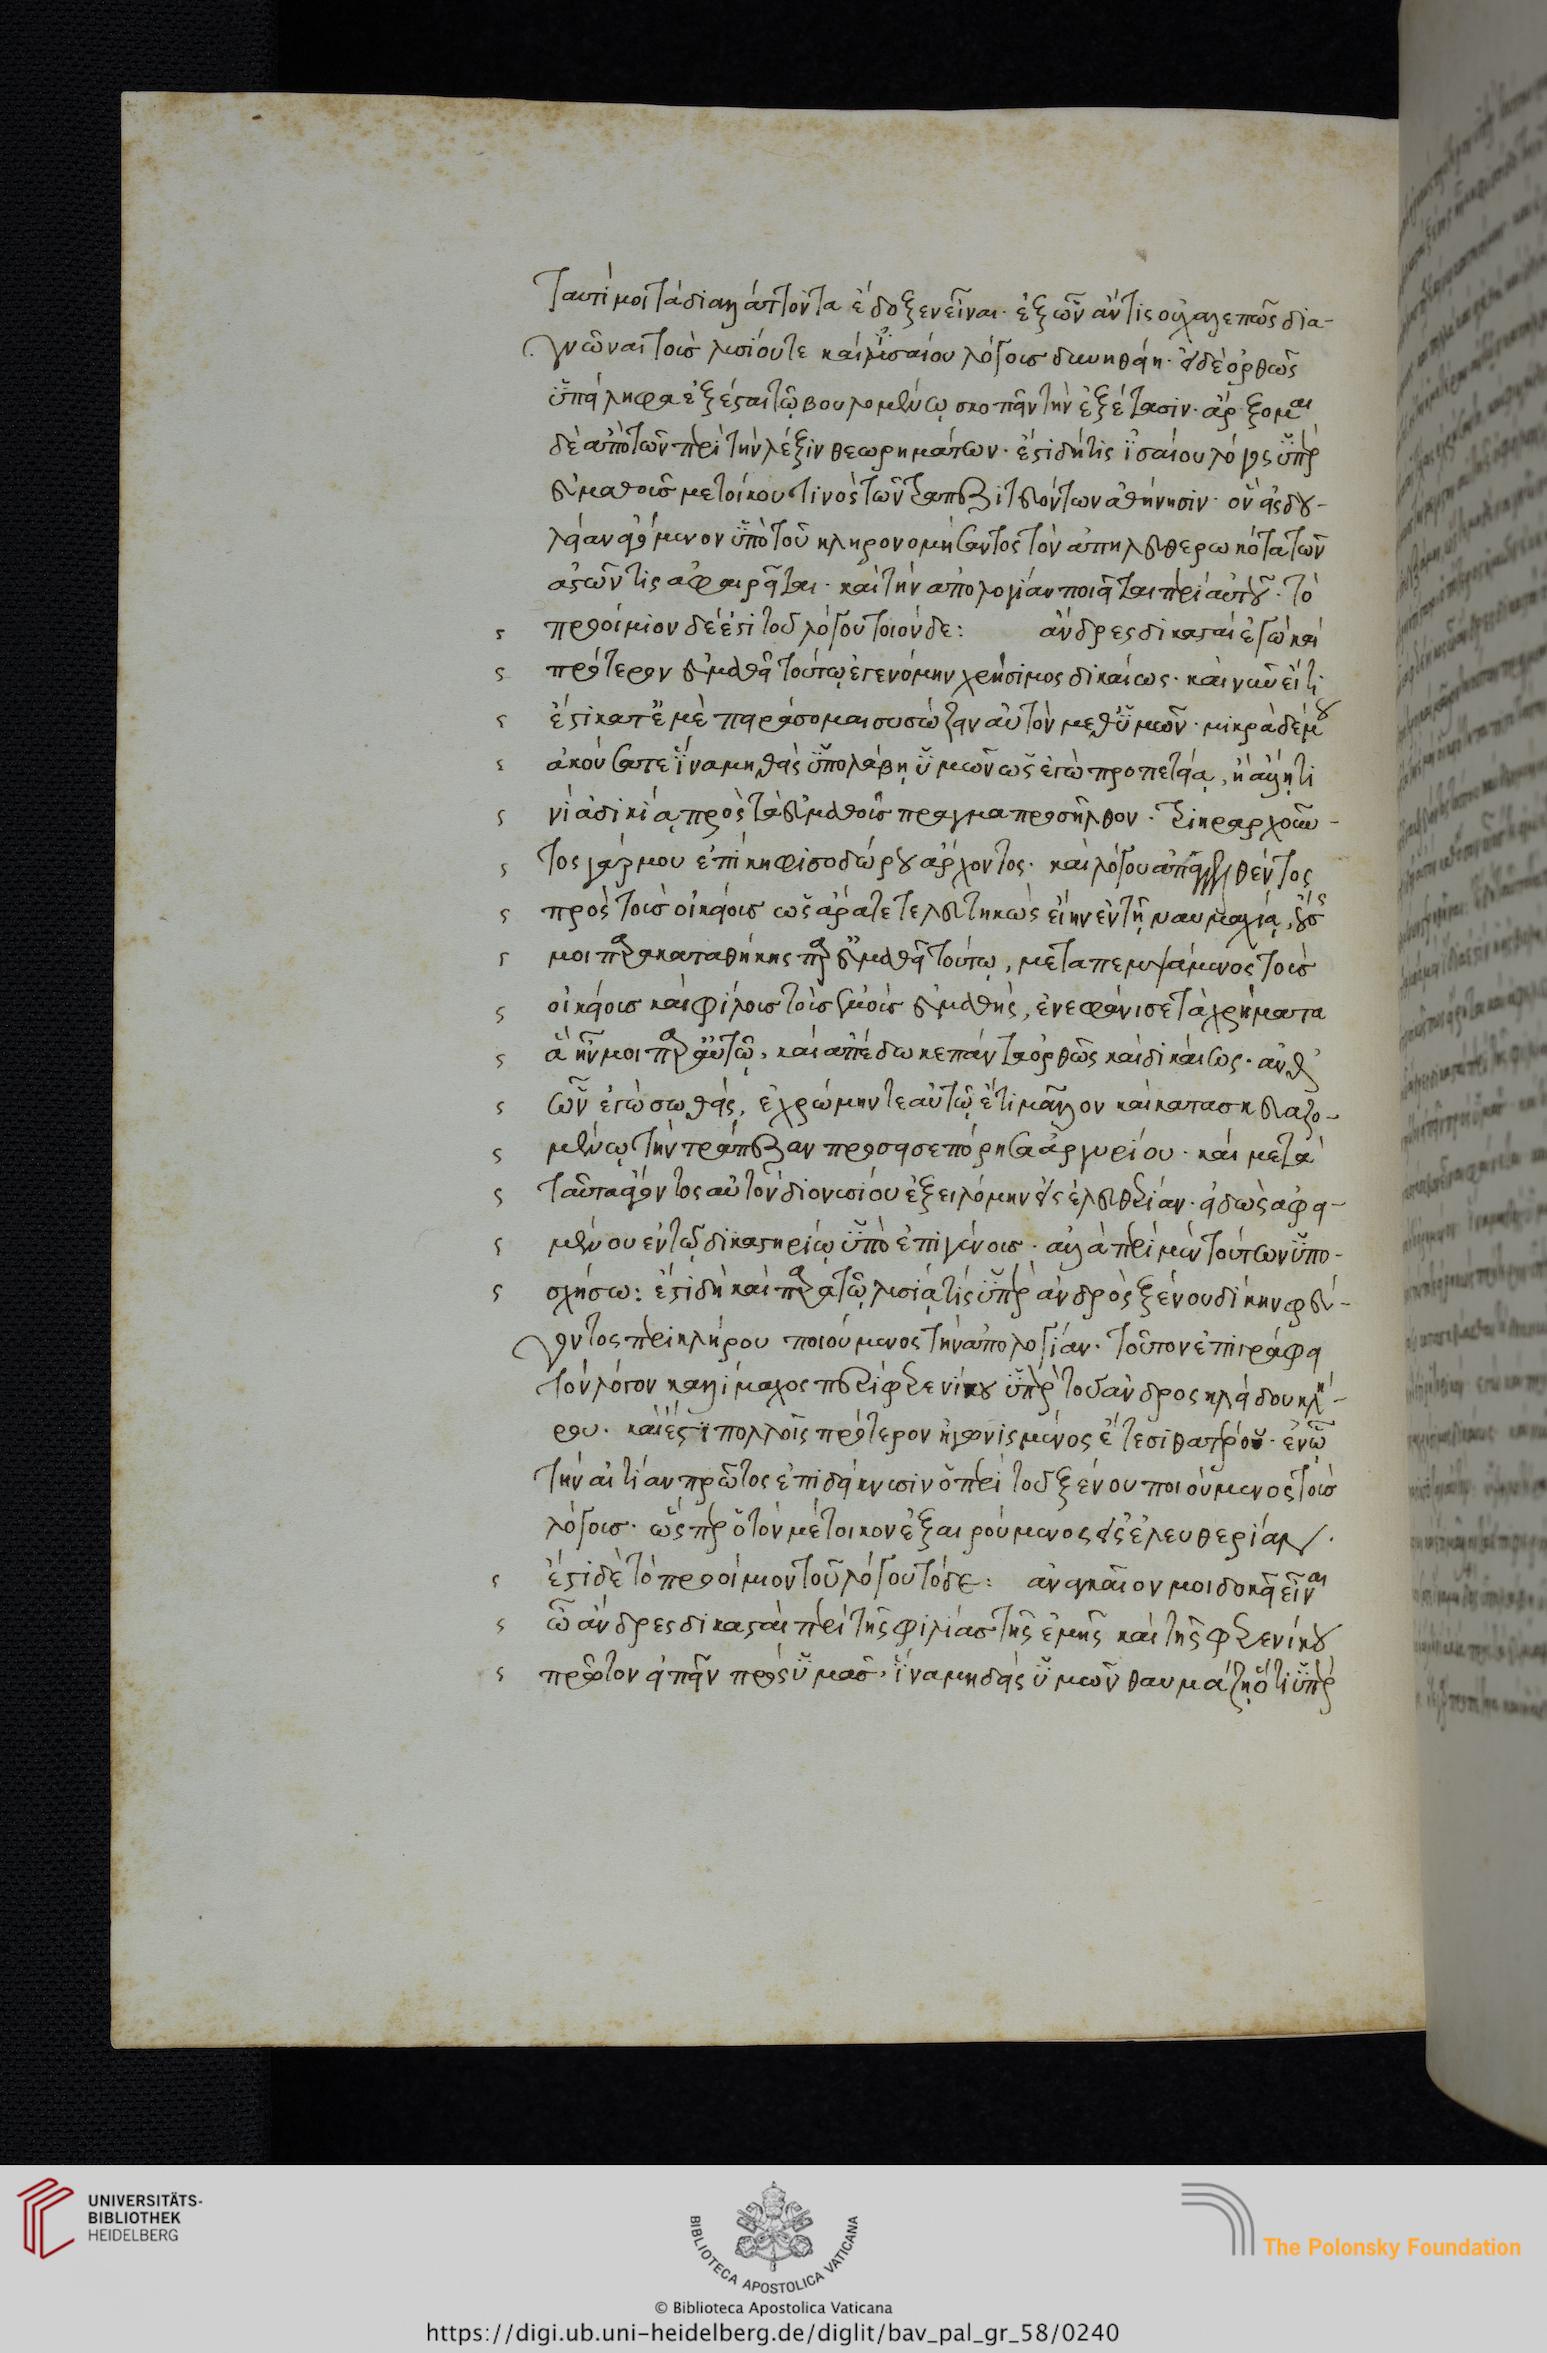 ταυτί μοι τὰ διαλλάττοντα ἔδοξεν εἶναι· ἐξ ὧν ἄν τις οὐ χαλεπῶς δια-
γνῶναι τοῖς λυσίου τε καὶ ἰσαίου λόγοις δυνηθείη· εἰ δὲ ὀρθῶς
ὑπείληφα ἔξεσται τῷ βουλομένῳ σκοπεῖν τὴν ἐξέτασιν· ἄρξομαι
δὲ ἀπὸ τῶν περὶ τὴν λέξιν θεωρημάτων· ἔστι δή τις ἰσαίου λόγος ὑπὲρ
εὐμάθους μετοίκου τινὸς τῶν τραπεζιτευόντων ἀθήνησιν· ὃν εἰς δου-
λείαν ἀγόμενον ὑπὸ τοῦ κληρονομήσαντος τὸν ἀπηλευθερωκότα τῶν
ἀστῶν τις ἀφαιρεῖται· καὶ τὴν ἀπολογίαν ποιεῖται περὶ αὐτοῦ· τὸ
προοίμιον δέ ἐστι τοῦ λόγου τοιόνδε: ἄνδρες δικασταὶ ἐγὼ καὶ
πρότερον εὐμάθει τούτῳ ἐγενόμην χρήσιμος δικαίως· καὶ νῦν εἴ τι
ἔστι κατ' ἐμὲ πειράσομαι συσώζειν αὐτὸν μεθ' ὑμῶν· μικρὰ δέ μου
ἀκούσατε ἵνα μηθεὶς ὑπολάβῃ ὑμῶν ὡς ἐγὼ προπετείᾳ, ἢ ἄλλῃ τι
νὶ ἀδικίᾳ πρὸς τὰ εὐμάθους πράγμα προσῆλθον· τριηραρχοῦν-
τος γάρ μου ἐπὶ κηφισοδώρου ἄρχοντος· καὶ λόγου ἀπαγγελθέντος
πρὸς τοὺς οἰκείους ὡς ἄρα τετελευτηκὼς εἴην ἐν τῇ ναυμαχίᾳ, οὔσης
μοι παρακαταθήκης παρ' εὐμάθει τούτῳ, μεταπεμψάμενος τοὺς
οἰκείους καὶ φίλους τοὺς ἐμοὺς εὐμάθης, ἐνεφάνισε τὰ χρήματα
ἃ ἦν μοι παρ' αὐτῷ, καὶ ἀπέδωκε πάντα ὀρθῶς καὶ δικαίως· ἀνθ'
ὧν ἐγὼ σωθείς, ἐχρώμην τε αὐτῷ ἔτι μᾶλλον καὶ κατασκευαζο-
μένῳ τὴν τράπεζαν προσεισεπόρησα ἀργυρίου· καὶ μετὰ
ταῦτα ἄγοντος αὐτὸν διονυσίου ἐξειλόμην εἰς ἐλευθερίαν· εἰδὼς ἀφει-
μένου ἐν τῷ δικαστηρίῳ ὑπὸ ἐπιγένους· ἀλλὰ περὶ μὲν τούτων ὑπο-
σχήσω: ἔστι δὴ καὶ παρὰ τῷ λυσίᾳ τίς ὑπὲρ ἀνδρὸς ξένου δίκην φεύ-
γοντος περὶ κλήρου ποιούμενος τὴν ἀπολογίαν· τοῦτον ἐπιγράφει
τὸν λόγον καλλίμαχος περὶ φερενίκου ὑπὲρ τοῦ ἀνδροκλείδου κλή-
ρου· καὶ ἔστι πολλοῖς πρότερον ἠγωνισμένος ἔτεσι θατέρου· ἐν ᾧ
τὴν αἰτίαν πρῶτος ἐπιδείκνυσιν ὁ περὶ τοῦ ξένου ποιούμενος τοὺς
λόγους· ὥσπερ ὁ τὸν μέτοικον ἐξαιρούμενος εἰς ἐλευθερίαν·
ἔστι δὲ τὸ προοίμιον τοῦ λόγου τόδε: ἀναγκαῖόν μοι δοκεῖ εἶναι
ὦ ἄνδρες δικασταὶ περὶ τῆς φιλίας τῆς ἐμῆς καὶ τῆς φερενίκου
πρῶτον εἰπεῖν πρὸς ὑμᾶς, ἵνα μηδεὶς ὑμῶν θαυμάζῃ ὅτι ὑπὲρ
UNIVERSITÄTS-
BIBLIOTHEK
HEIDELBERG
BIBLIOTECA APOSTOLICA VATICANA
The Polonsky Foundation
© Biblioteca Apostolica Vaticana
https://digi.ub.uni-heidelberg.de/diglit/bav_pal_gr_58/0240